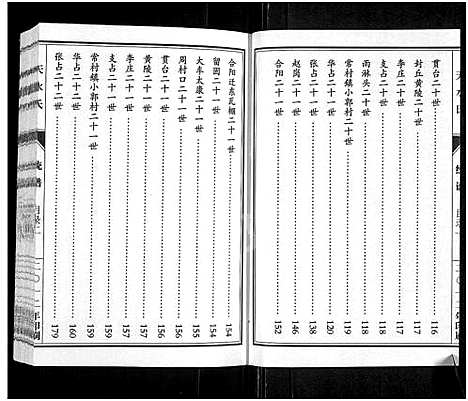 贯台二十世 116
封丘黄陵二十世 117
李庄二十世 117
支占二十世 118
雨淋头二十世 118
常村镇小郭村二十世 119
华占二十世 120
张占二十世 138
赵岗二十世 146
合阳二十世 152
合阳迁东瓦厢二十一世 154
留固二十一世 154
大车太康二十一世 155
周村口二十一世 156
贯台二十一世 156
黄陵二十一世 157
李庄二十一世 157
支占二十一世 159
常村镇小郭村二十一世 159
华占二十一世 160
张占二十二世 179
天水氏
续谱
目录二
二〇一二年印刷